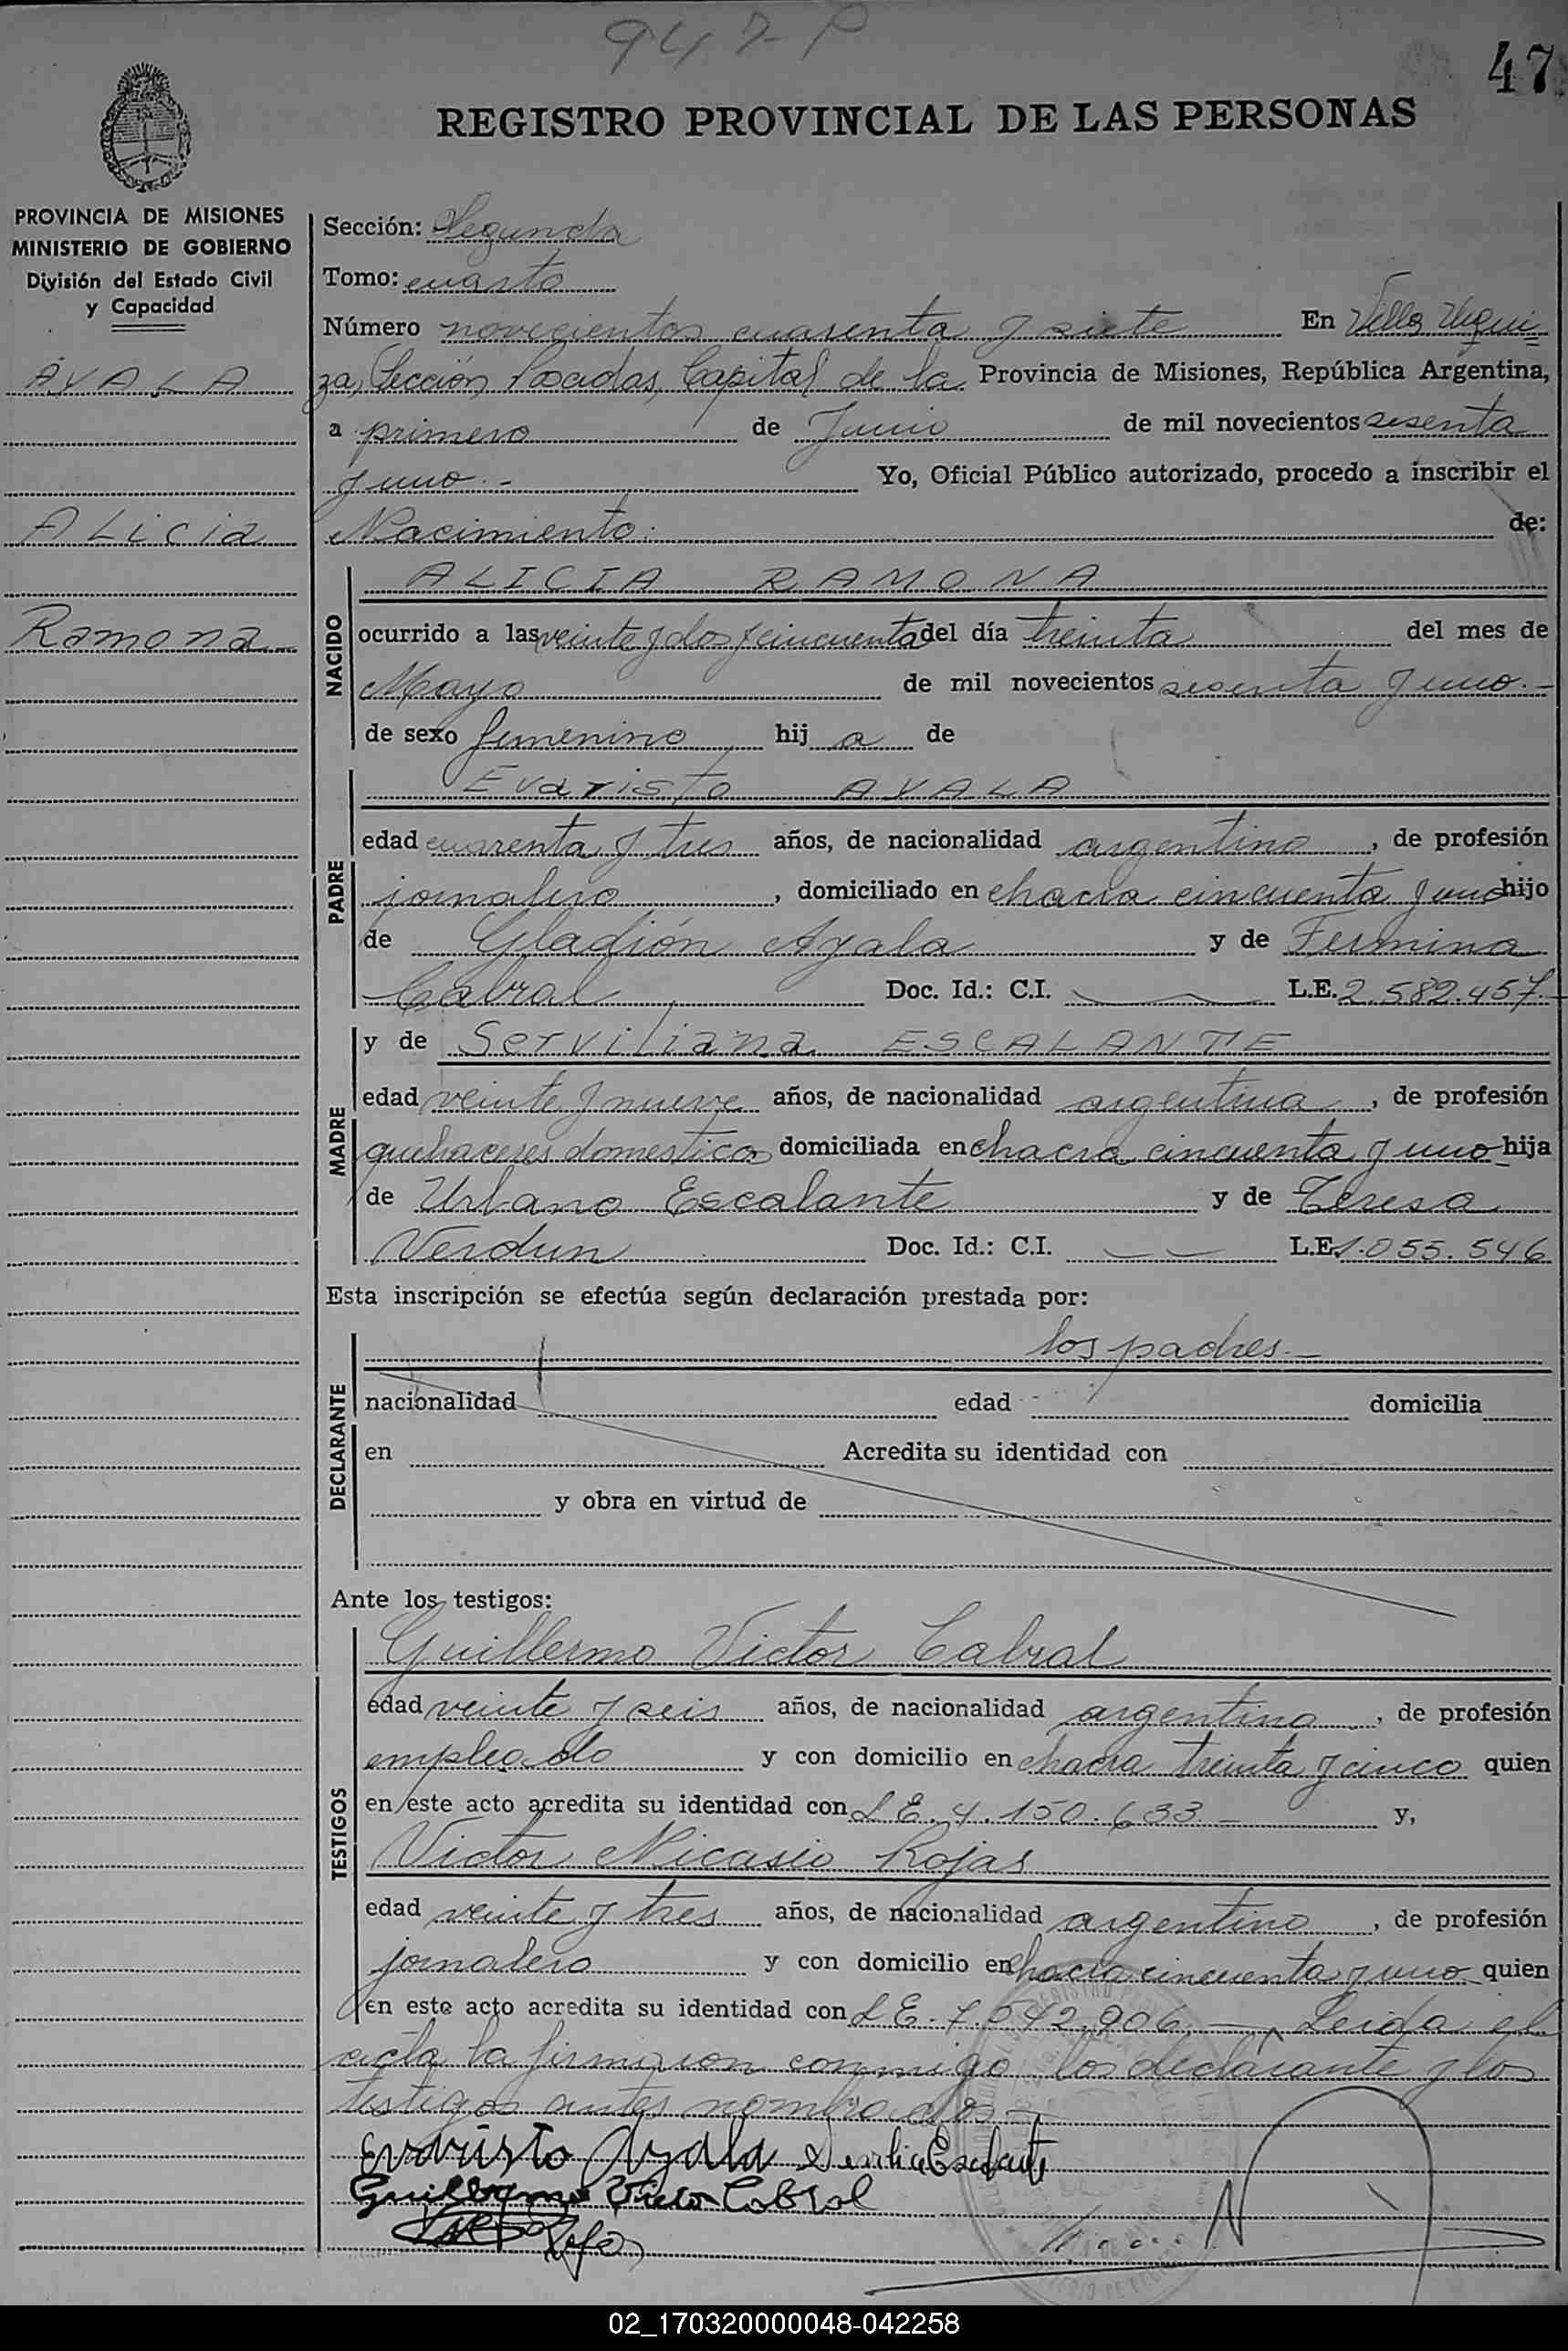 947-P
47
REGISTRO PROVINCIAL DE LAS PERSONAS
PROVINCIA DE MISIONES
MINISTERIO DE GOBIERNO
División del Estado Civil
y Capacidad
AYALA
Alicia
Ramona
Sección: Segunda
Tomo: cuarto
Número novecientos cuarenta y siete En Villa Urqui
za, Sección Posadas, Capital de la Provincia de Misiones, República Argentina,
a primero de Junio de mil novecientos sesenta
y uno.- Yo, Oficial Público autorizado, procedo a inscribir el
Nacimiento. de:
NACIDO
ALICIA RAMONA
ocurrido a las veinte y dos y cincuenta del día treinta del mes de
Mayo de mil novecientos sesenta y uno.-
de sexo femenino hij a de
PADRE
Evaristo AYALA
edad cuarenta y tres años, de nacionalidad argentino, de profesión
jornalero, domiciliado en chacra cincuenta y uno hijo
de Gladión Ayala y de Fermina
Cabral Doc. Id.: C.I. L.E. 2.582.457.-
MADRE
y de Serviliana ESCALANTE
edad veinte y nueve años, de nacionalidad argentina, de profesión
quehaceres domesticos domiciliada en chacra cincuenta y uno hija
de Urbano Escalante y de Teresa
Verdun Doc. Id.: C.I. L.E. 1.055.546
Esta inscripción se efectúa según declaración prestada por:
DECLARANTE
los padres.-
nacionalidad edad domicilia
en Acredita su identidad con
y obra en virtud de
Ante los testigos:
TESTIGOS
Guillermo Victor Cabral
edad veinte y seis años, de nacionalidad argentino, de profesión
empleado y con domicilio en chacra treinta y cinco quien
en este acto acredita su identidad con L.E. 4.150.633.- y,
Victor Nicasio Rojas
edad veinte y tres años, de nacionalidad argentino, de profesión
jornalero y con domicilio en chacra cincuenta y uno quien
en este acto acredita su identidad con L.E. 7.542.906.- Leida el
acta la firmaron conmigo los declarante y los
testigos antes nombrados.-
Evaristo Ayala Escalante
Guillermo Victor Cabral
Rojas
02_170320000048-042258